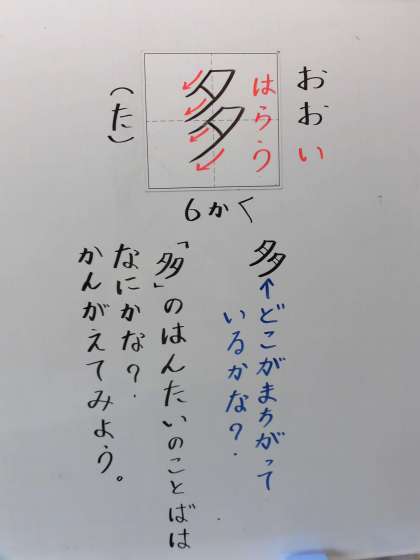 おおい
はらう
多
(た)
6かく
多←どこがまちがって
いるかな?
「多」のはんたいのことばは
なにかな?
かんがえてみよう。